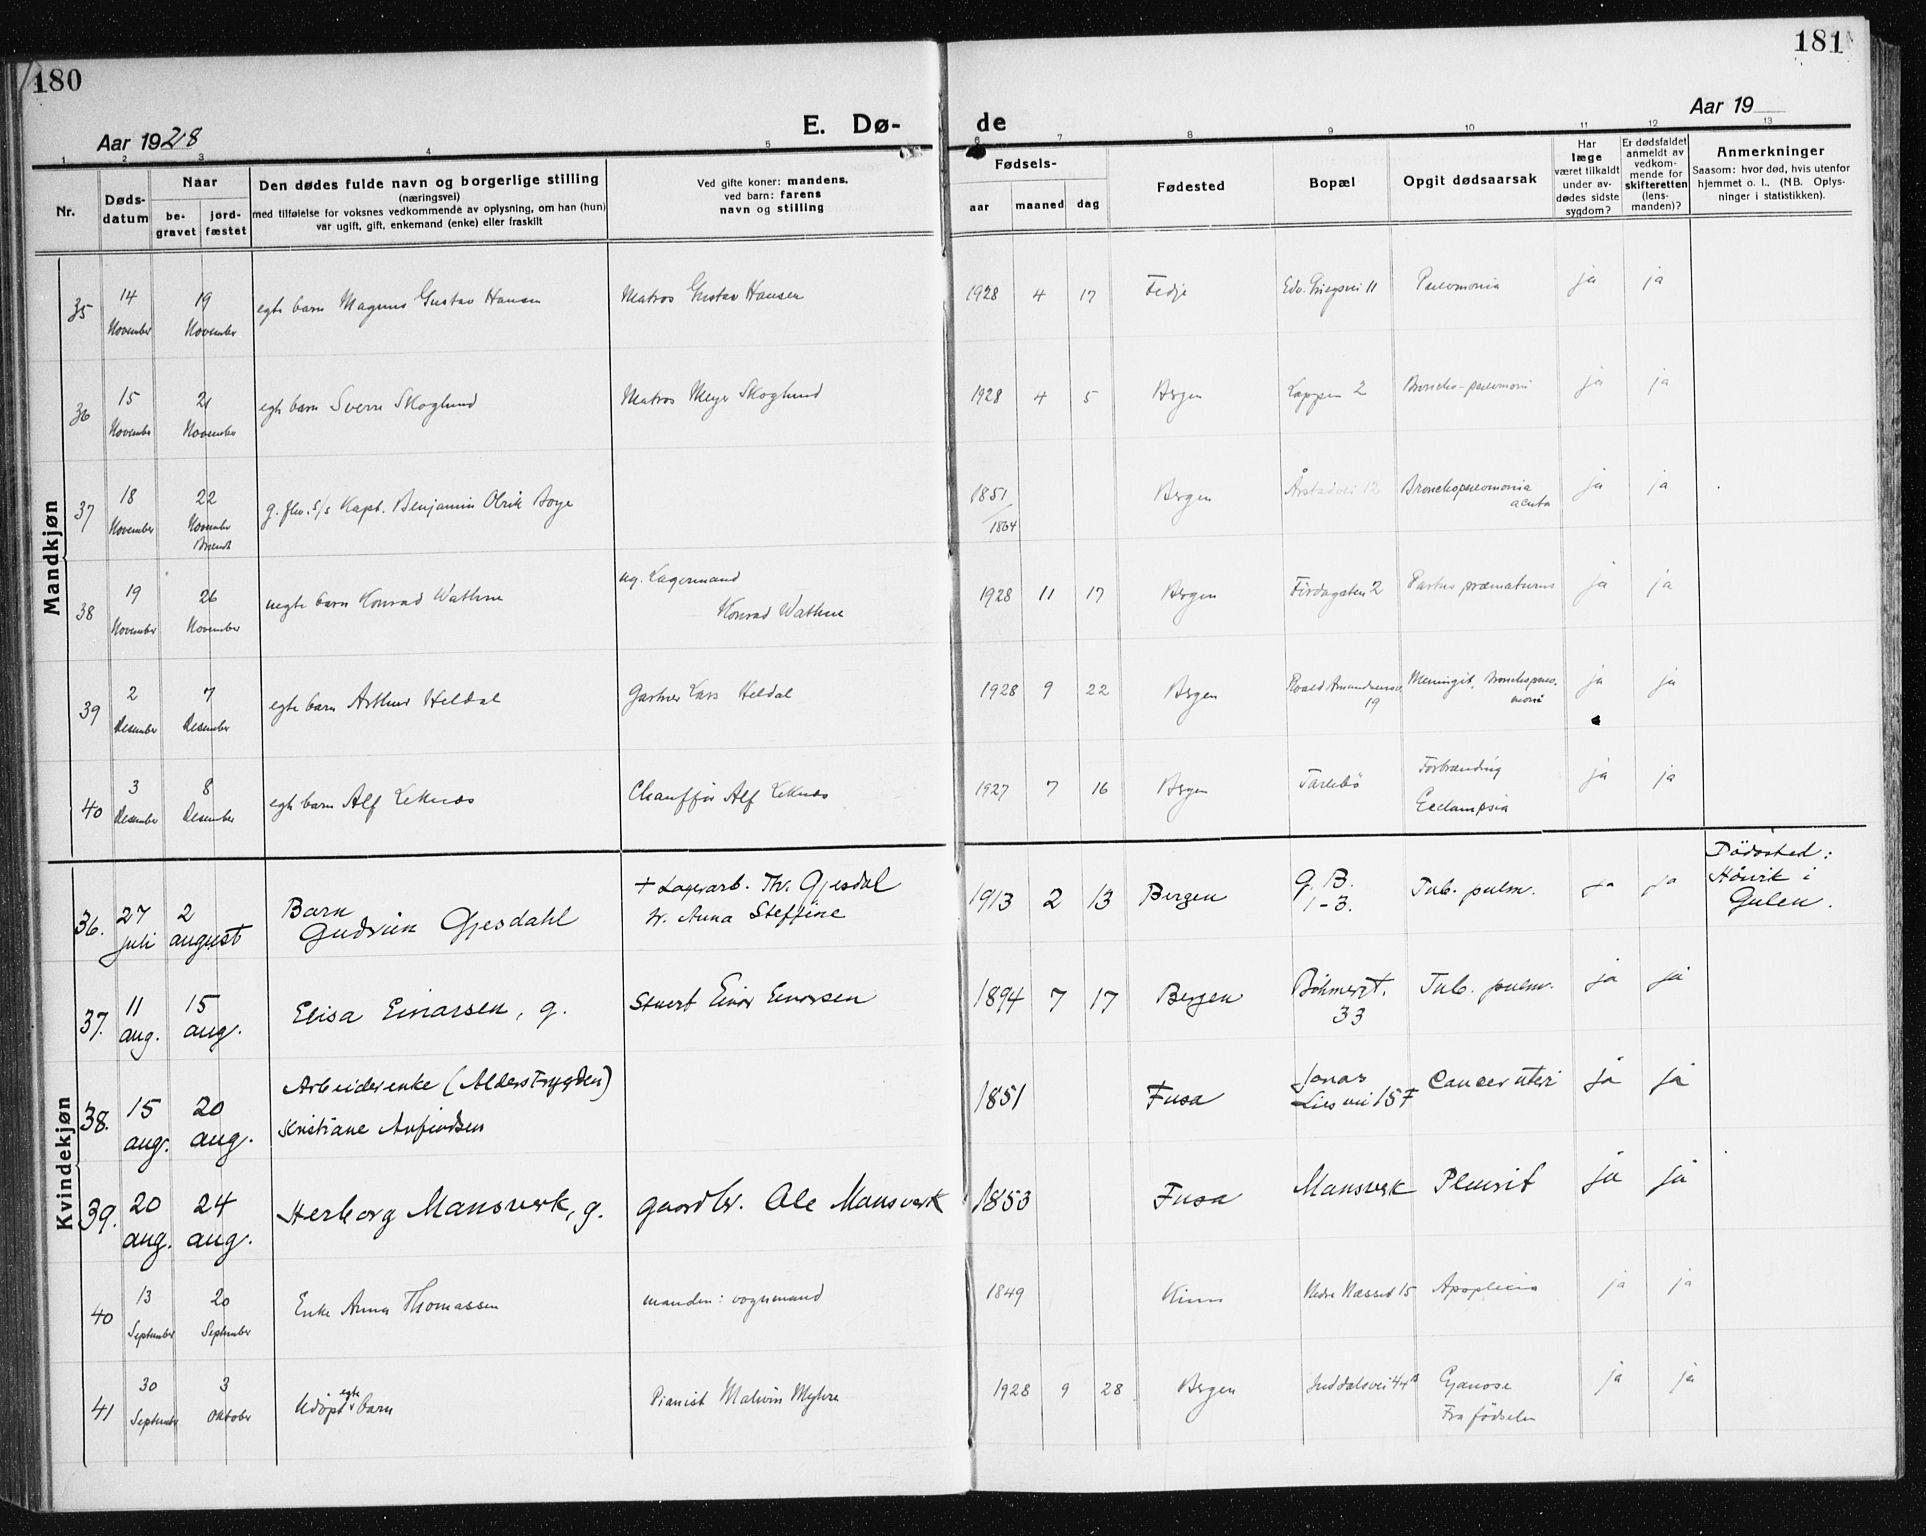 180
181
Aar 1928
E. Dø-
de
Aar 19
1 2 3 4 5 6 7 8 9 10 11 12 13
Nr.
Døds-
datum
Naar
be-
gravet
jord-
fæstet
Den dødes fulde navn og borgerlige stilling
(næringsvei)
med tilføielse for voksnes vedkommende av oplysning, om han (hun)
var ugift, gift, enkemand (enke) eller fraskilt
Ved gifte koner: mandens,
ved barn: farens
navn og stilling
Fødsels-
aar maaned dag
Fødested
Bopæl
Opgit dødsaarsak
Har
læge
været tilkaldt
under av-
dødes sidste
sygdom?
Er dødsfaldet
anmeldt av
vedkom-
mende for
skifteretten
(lens-
manden)?
Anmerkninger
Saasom: hvor død, hvis utenfor
hjemmet o. l.. (NB. Oplys-
ninger i statistikken).
Mandkjøn
35 14 November 19 November egte barn Magnus Gustav Hansen Matros Gustav Hansen 1928 4 17 Fedje Edv. Griegsvei 11 Pneumonia ja ja
36 15 November 21 November egte barn Sverre Skoglund Matros Meyer Skoglund 1928 4 5 Bergen Lappen 2 Broncho-pneumoni ja ja
37 18 November 22 November Brændt g. fhv. S/s Kapt. Benjamin Olrik Boye 1851 /1864 Bergen Årstadvei 12 Bronchopneumonia acuta ja ja
38 19 November 26 November uegte barn Konrad Wathne ug. Lagermand
Konrad Wathne 1928 11 17 Bergen Firdagaten 2 Partus præmaturus ja ja
39 2 Desember 7 Desember egte barn Arthur Heldal Gartner Lars Heldal 1928 9 22 Bergen Roald Amundsensv. 19 Meningit, Bronchopneu-
moni ja ja
40 3 Desember 8 Desember egte barn Alf Leknes Chauffør Alf Leknes 1927 7 16 Bergen Tarlebø Forbrænding
Eclampsia ja ja
Kvindekjøn
36. 27 juli 2 august Barn
Gudrun Gjesdahl + Lagerarb. Th. Gjesdal
h. Anna Steffine 1913 2 13 Bergen G. B.
1-3. Tub. pulm. ja ja Dödssted:
Hånvik i
Gulen.
37. 11 aug. 15 aug. Elisa Einarsen, g. Stuert Einar Einarsen 1894 7 17 Bergen Böhmergt.
33 Tub. pulm. ja ja
38. 15 aug. 20 aug. Arbeiderenke (Alderstrygden)
Kristiane Anfindsen 1851 Fusa Jonas
Lies vei 15F Cancer uteri ja ja
39. 20 aug. 24 aug. Herborg Mansverk, g. gaardbr. Ole Mansverk 1853 Fusa Mansverk Pleurit ja ja
40 13 September 20 September Enke Anna Thomassen manden: vognmand 1849 Kinn Nedre Næsset 15 Apoplexia ja ja
41 30 September 3 Oktober Udöpt egte barn Pianist Malvin Myhre 1928 9 28 Bergen 44B Cyanose
Fra födselen ja ja